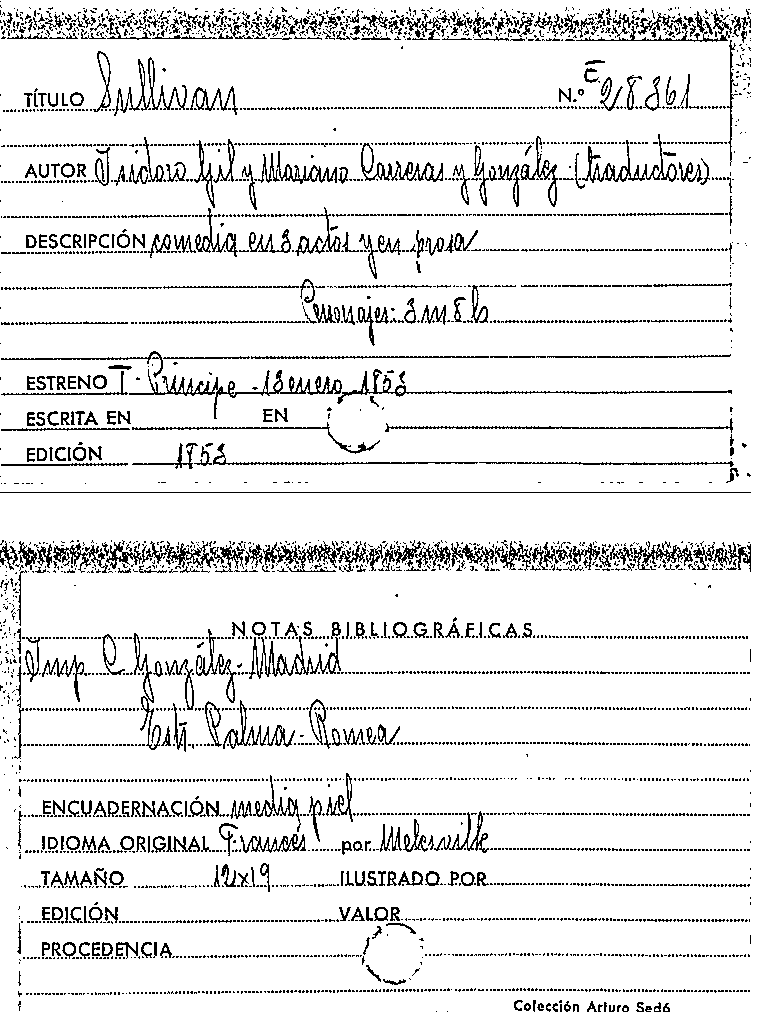 TÍTULO Sullivan N.º E 28361
AUTOR Isidoro Gil y Mariano Carreras y González (traductores)
DESCRIPCIÓN comedia en 3 actos y en prosa
Personajes: 3 m 8 h
ESTRENO T. Príncipe - 13 enero 1853
ESCRITA EN EN
EDICIÓN 1853
NOTAS BIBLIOGRÁFICAS
Imp C. González - Madrid
Estr. Palma - Romea
ENCUADERNACIÓN media piel
IDIOMA ORIGINAL Francés por Melesville
TAMAÑO 12x19 ILUSTRADO POR
EDICIÓN VALOR
PROCEDENCIA
Colección Arturo Sedó